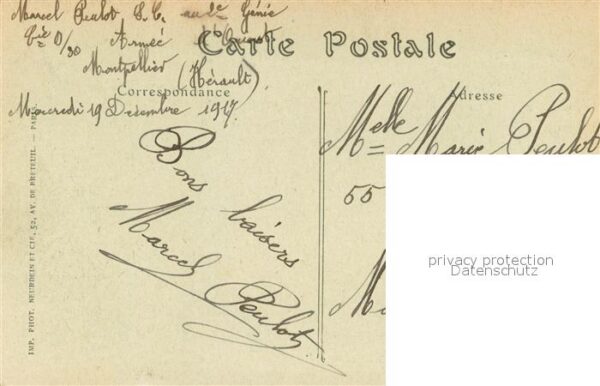 Marcel Peulot S.C. au 2e Génie
Cie D/30 Armée d'Orient
Montpellier (Hérault)
Mercredi 19 Décembre 1917
Carte Postale
Correspondance
Adresse
Bons baisers
Marcel Peulot
Melle Marie Peulot
55
M
privacy protection
Datenschutz
IMP. PHOT. NEURDEIN ET CIE, 52, AV. DE BRETEUIL. — PARIS